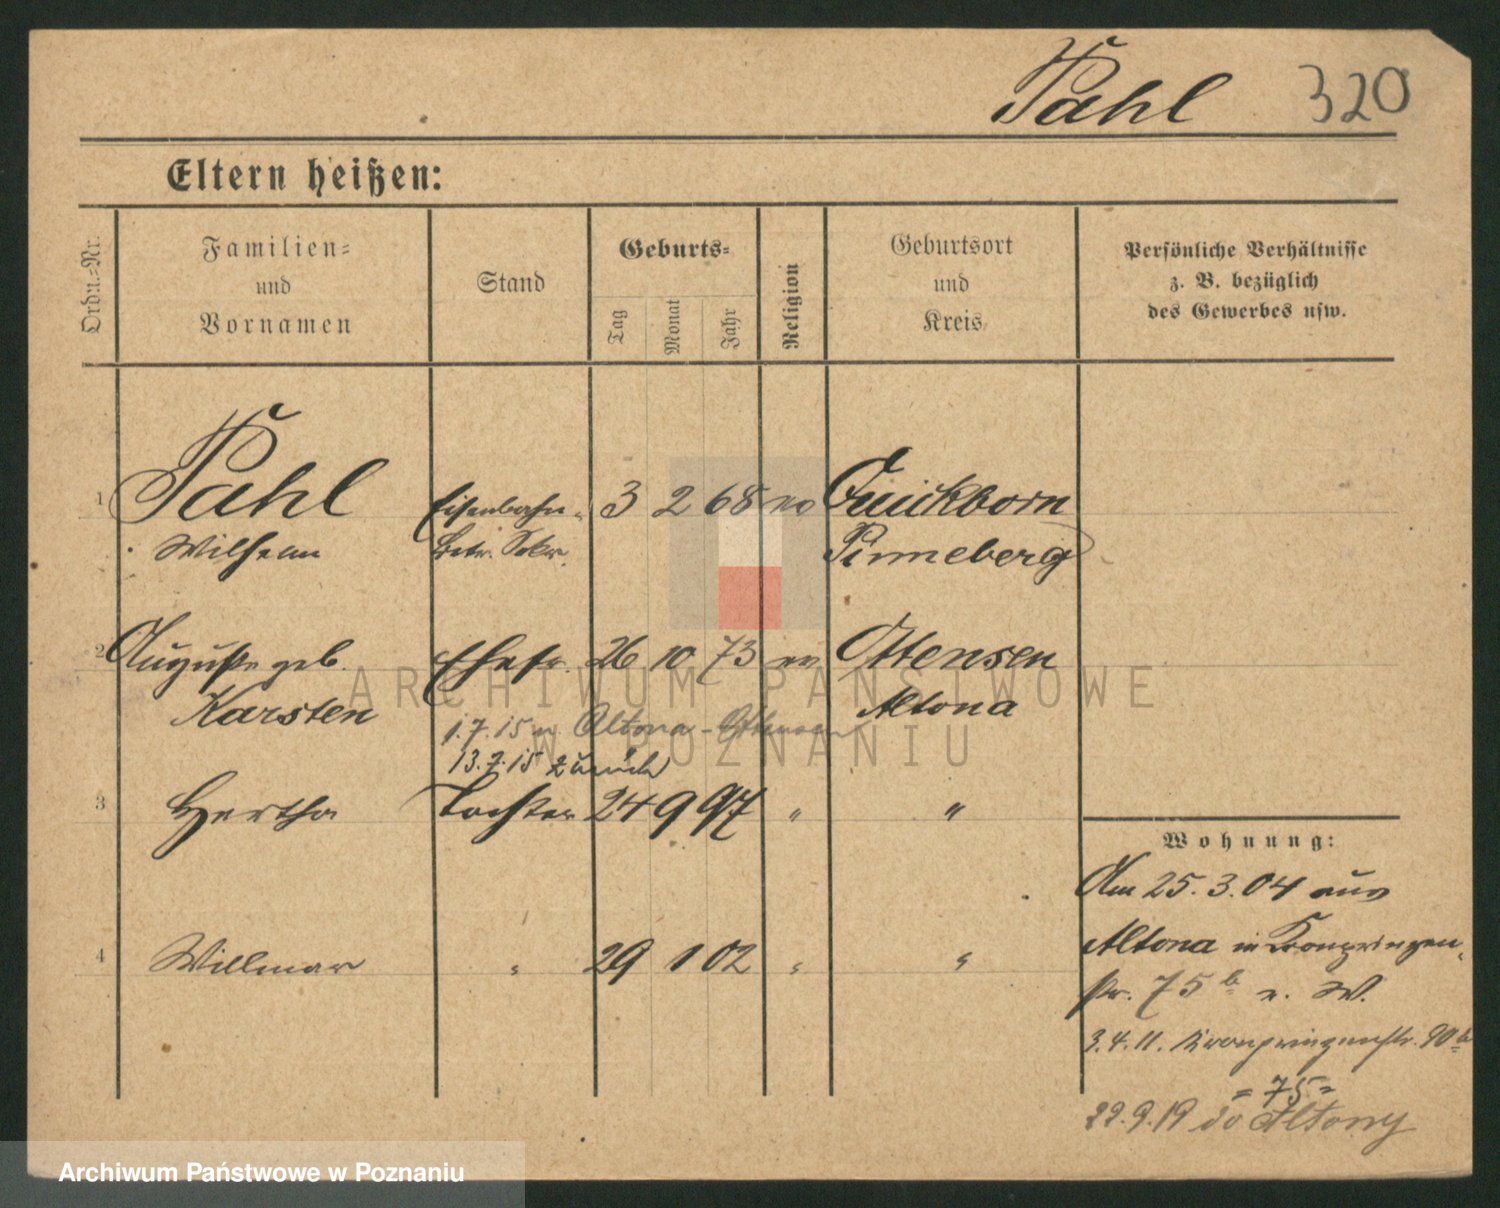 Pahl 320
Eltern heißen:
Ordn.-Nr.
Familien-
und
Vornamen
Stand
Geburts-
Tag
Monat
Jahr
Religion
Geburtsort
und
Kreis
Persönliche Verhältnisse
z. B. bezüglich
des Gewerbes usw.
1 Pahl Eisenbahn- 3 2 68 ev Quickborn
Wilhelm Betr. Sekr. Pinneberg
2 Auguste geb. Ehefr. 26 10 73 ev Ottensen
Karsten Altona
1.7.15 n. Altona-Ottensen
13.7.15 zurück
3 Hertha Tochter 24 9 97 " "
4 Willmar " 29 1 02 " "
Wohnung:
Am 25.3.04 aus
Altona in Kronprinzen-
str. 75 b. W.
3.4.11. Kronprinzenstr. 90 b
= 75 =
22.9.19 do Altony
ARCHIWUM PAŃSTWOWE
W POZNANIU
Archiwum Państwowe w Poznaniu